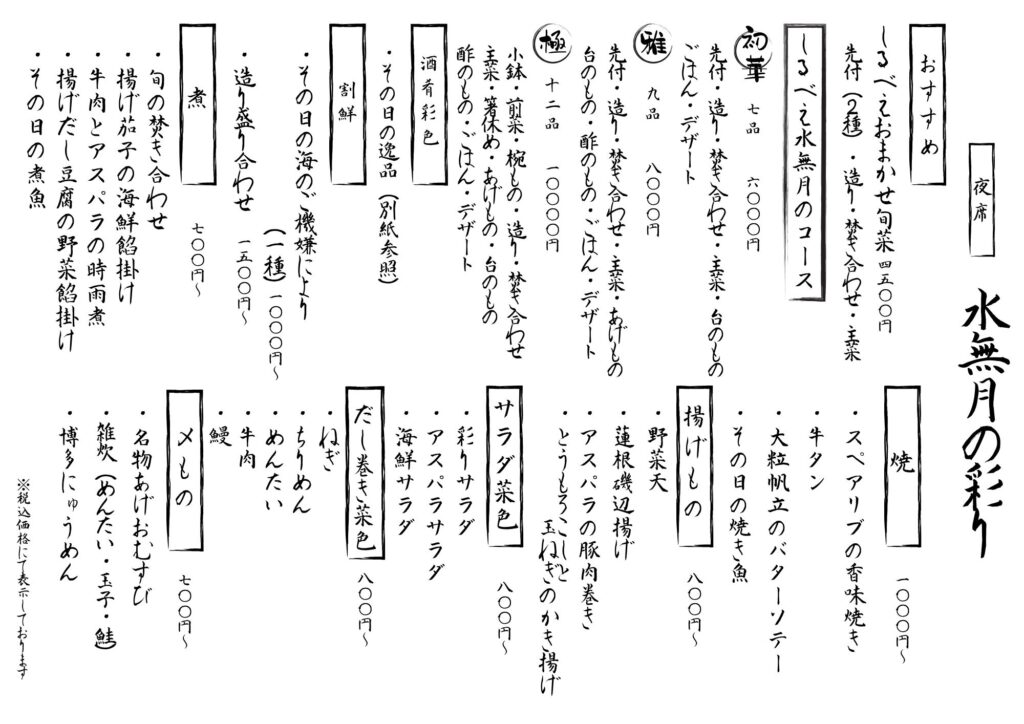 夜席
水無月の彩り
おすすめ
しるべえおまかせ旬菜 四五〇〇円
先付(2種)・造り・焚き合わせ・主菜
しるべえ水無月のコース
初華 七品 六〇〇〇円
先付・造り・焚き合わせ・主菜・台のもの
ごはん・デザート
雅 九品 八〇〇〇円
先付・造り・焚き合わせ・主菜・あげもの
台のもの・酢のもの・ごはん・デザート
極 十二品 一〇〇〇〇円
小鉢・前菜・椀もの・造り・焚き合わせ
主菜・箸休め・あげもの・台のもの
酢のもの・ごはん・デザート
酒肴彩色
・その日の逸品(別紙参照)
割鮮
・その日の海のご機嫌により
(一種)一〇〇〇円〜
・造り盛り合わせ 一五〇〇円〜
煮 七〇〇円〜
・旬の焚き合わせ
・揚げ茄子の海鮮餡掛け
・牛肉とアスパラの時雨煮
・揚げだし豆腐の野菜餡掛け
・その日の煮魚
焼 一〇〇〇円〜
・スペアリブの香味焼き
・牛タン
・大粒帆立のバターソテー
・その日の焼き魚
揚げもの 八〇〇円〜
・野菜天
・蓮根磯辺揚げ
・アスパラの豚肉巻き
・とうもろこしと
玉ねぎのかき揚げ
サラダ菜色 八〇〇円〜
・彩りサラダ
・アスパラサラダ
・海鮮サラダ
だし巻き菜色 八〇〇円〜
・ねぎ
・ちりめん
・めんたい
・牛肉
・鰻
〆もの 七〇〇円〜
・名物あげおむすび
・雑炊(めんたい・玉子・鮭)
・博多にゅうめん
※税込価格にて表示しております